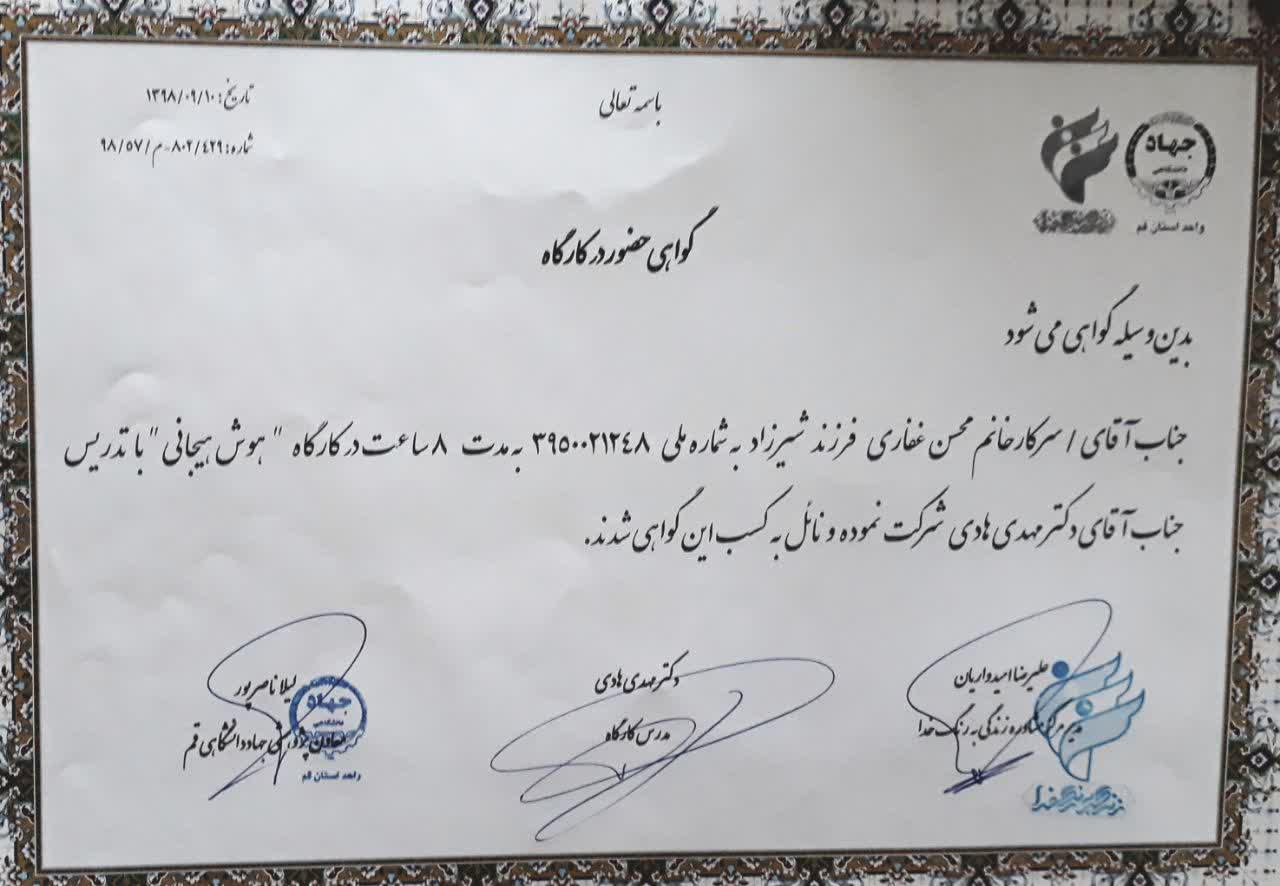 باسمه تعالی
تاریخ: ۱۳۹۸/۰۹/۱۰
شماره: ۸۰۲/۴۲۹-م/۹۸/۵۷
جهاد
دانشگاهی
واحد استان قم
گواهی حضور در کارگاه
بدین وسیله گواهی می شود
جناب آقای / سرکار خانم محسن غفاری فرزند شیرزاد به شماره ملی ۳۹۵۰۰۲۱۲۴۸ به مدت ۸ ساعت در کارگاه " هوش هیجانی " با تدریس
جناب آقای دکتر مهدی هادی شرکت نموده و نائل به کسب این گواهی شدند.
علیرضا امیدواریان
مدیر مرکز مشاوره زندگی به رنگ خدا
زندگی به رنگ خدا
دکتر مهدی هادی
مدرس کارگاه
لیلا ناصرپور
معاون پژوهشی جهاد دانشگاهی قم
جهاد
دانشگاهی
واحد استان قم